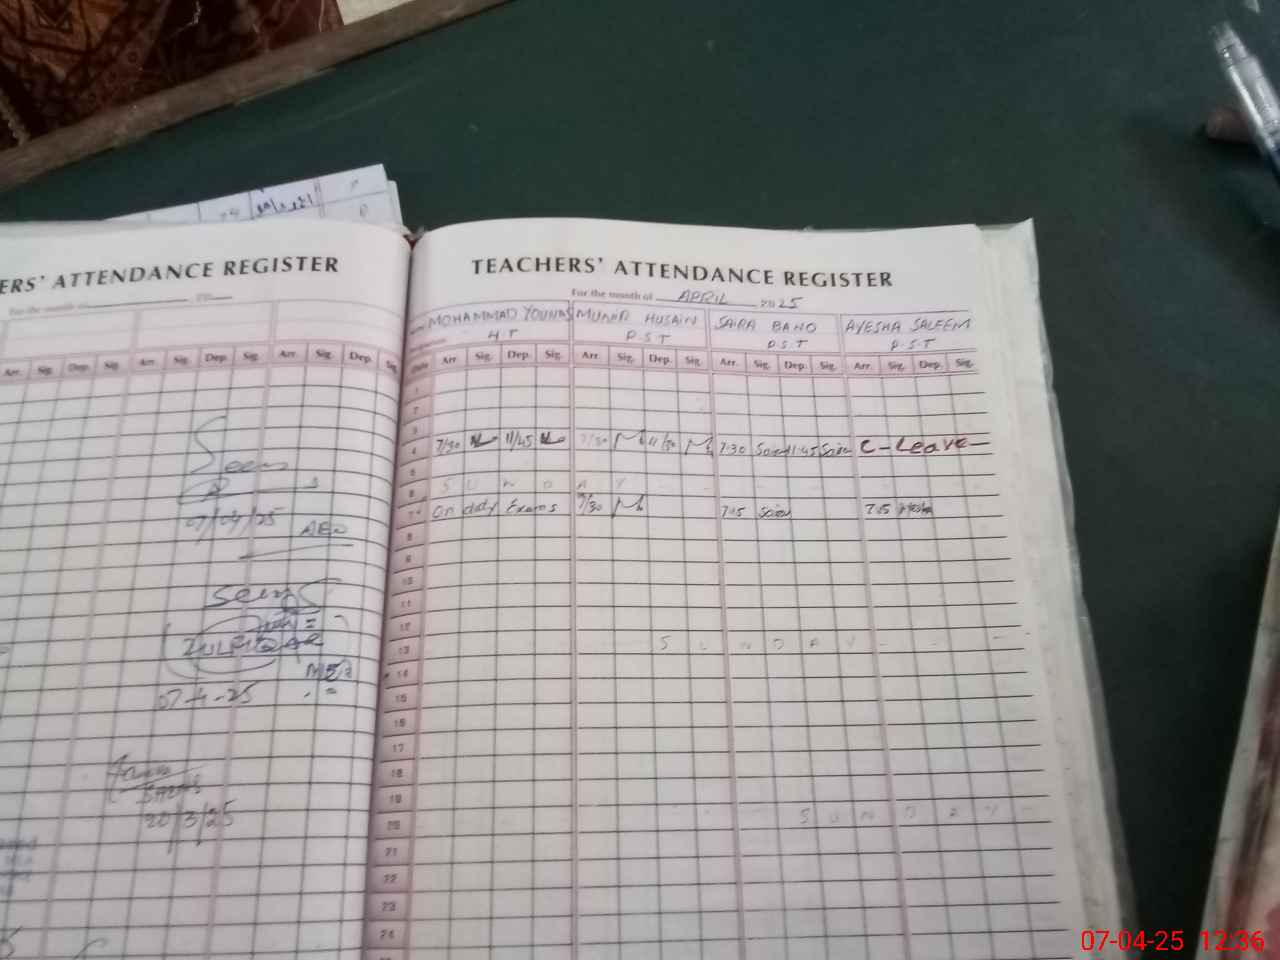 ERS' ATTENDANCE REGISTER
For the month of
Arr. Sig. Dep. Sig. Arr. Sig. Dep. Sig. Arr. Sig. Dep. Sig.
Seen
07/04/25
AEO
Seen
ZULFIQAR
07-4-25
20/3/25
TEACHERS' ATTENDANCE REGISTER
For the month of APRIL 2025
MOHAMMAD YOUNAS MUNIR HUSAIN SAIRA BANO AYESHA SALEEM
H T P.S.T P.S.T P.S.T
Date Arr. Sig. Dep. Sig. Arr. Sig. Dep. Sig. Arr. Sig. Dep. Sig. Arr. Sig. Dep. Sig.
1
2
3
4 7/30 11/45 7/30 11/30 7:30 Saira 11:45 Saira C-Leave
5
6 SUNDAY
7 On duty Exams 7/30 7:15 Saira 7:15
8
9
10
11
12
13 SUNDAY
14
15
16
17
18
19
20 SUNDAY
21
22
23
24
07-04-25 12:36